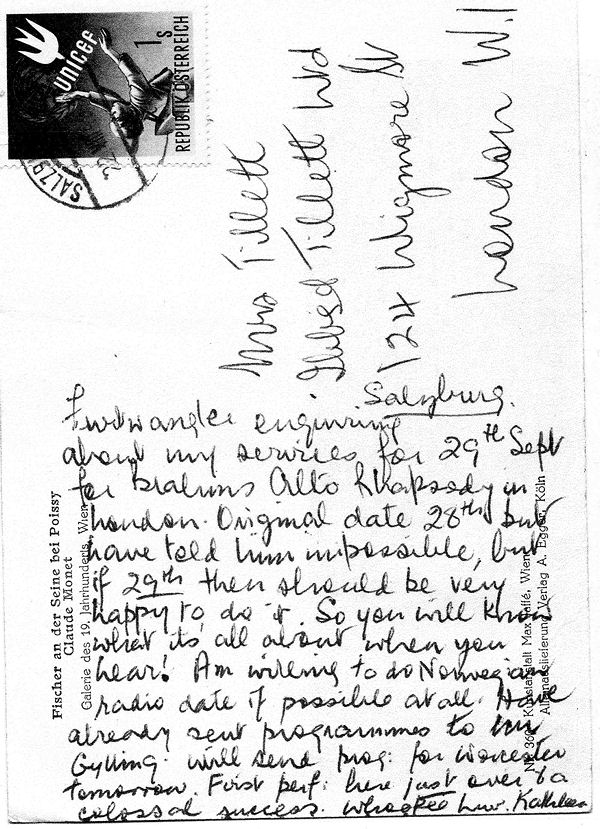 unicef
1 S
REPUBLIK ÖSTERREICH
SALZB
Mrs Tillett
Ibbs & Tillett Ltd
124 Wigmore St
London W.1
Salzburg.
Furtwangler enquiring
about my services for 29th Sept
for Brahms Alto Rhapsody in
London. Original date 28th but
have told him impossible, but
if 29th then should be very
happy to do it. So you will know
what it's all about when you
hear! Am willing to do Norwegian
radio date if possible at all. Have
already sent programmes to
Gylling. Will send prog: for Worcester
tomorrow. First perf: here just over & a
colossal success. Whoopee Luv. Kathleen
Fischer an der Seine bei Poissy
Claude Monet
Galerie des 19. Jahrhunderts, Wien
Kunstanstalt Max Jaffé, Wien
Alleinauslieferung Verlag A. Eggen, Köln